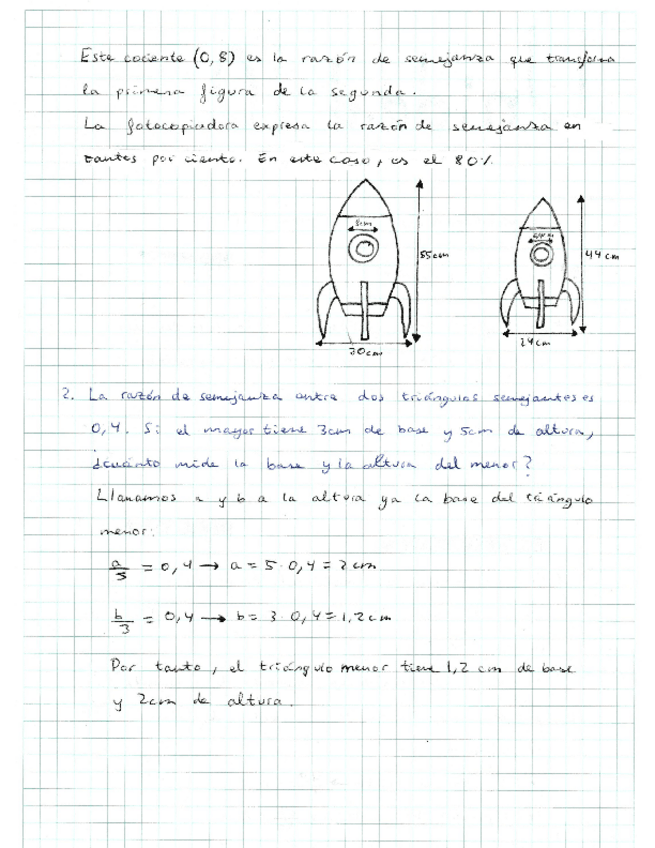 Este cociente (0,8) es la razón de semejanza que transforma
la primera figura de la segunda.
La fotocopiadora expresa la razón de semejanza en
tantos por ciento. En este caso, es el 80%.
8cm
55cm
44 cm
30cm
24cm
2. La razón de semejanza entre dos triángulos semejantes es
0,4. Si el mayor tiene 3cm de base y 5cm de altura,
¿cuánto mide la base y la altura del menor?
Llamamos a y b a la altura y a la base del triángulo
menor:
a/5 = 0,4 → a = 5·0,4 = 2 cm
b/3 = 0,4 → b = 3·0,4 = 1,2 cm
Por tanto, el triángulo menor tiene 1,2 cm de base
y 2cm de altura.